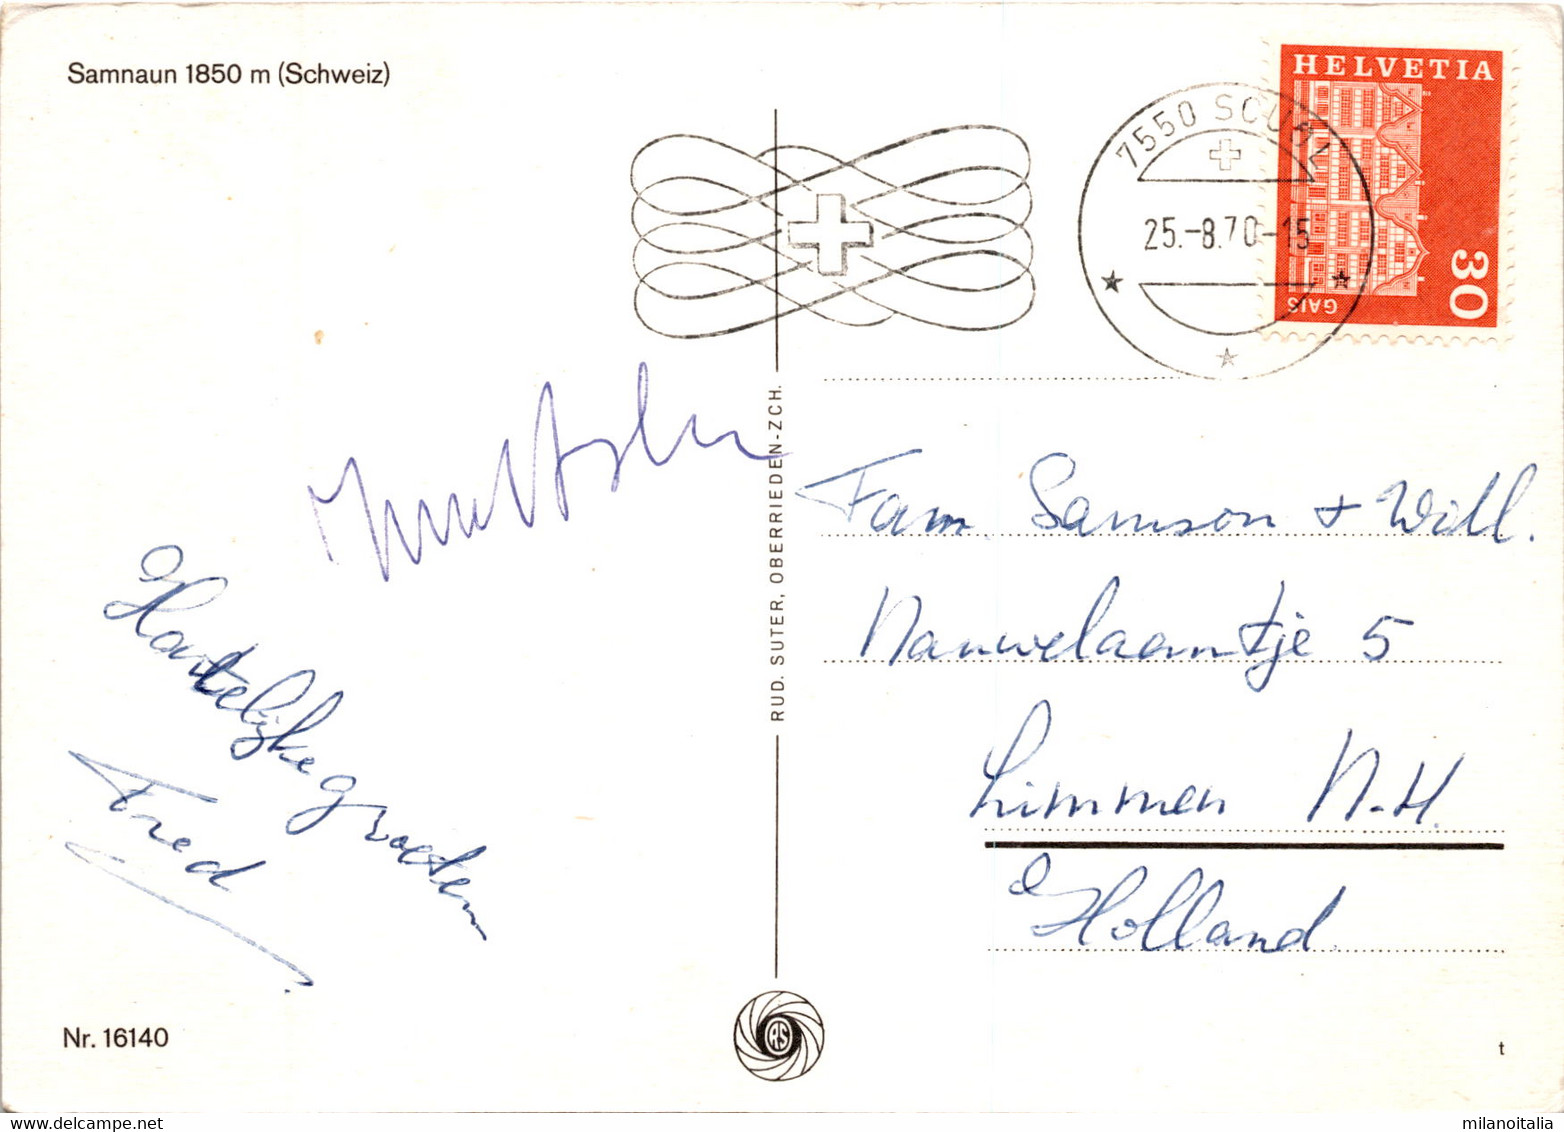 Samnaun 1850 m (Schweiz)
HELVETIA
30
GAIS
7550 SCUOL
25.-8.70-15
RUD. SUTER, OBERRIEDEN-ZCH.
Hartelijke groeten
Fred
Fam. Samson + Will.
Nauwelaantje 5
Limmen N.-H.
Holland
Nr. 16140
RS
t
milanoitalia